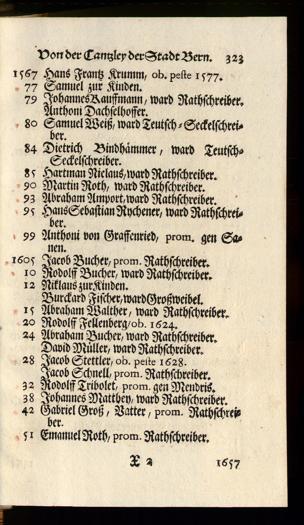 Von der Cantzley der Stadt Bern. 323
1567 Hans Frantz Krumm, ob. peste 1577.
77 Samuel zur Kinden.
79 Johannes Kauffmann, ward Rathschreiber.
Anthoni Dachselhoffer.
80 Samuel Weiß, ward Teutsch-Seckelschrei-
ber.
84 Dietrich Bindhämmer, ward Teutsch-
Seckelschreiber.
85 Hartman Niclaus, ward Rathschreiber.
90 Martin Roth, ward Rathschreiber.
93 Abraham Amport, ward Rathschreiber.
95 Hans Sebastian Rychener, ward Rathschrei-
ber.
99 Anthoni von Graffenried, prom. gen Sa-
nen.
1605 Jacob Bucher, prom. Rathschreiber.
10 Rodolff Bucher, ward Rathschreiber.
12 Niklaus zur Kinden.
Burckard Fischer, ward Großweibel.
15 Abraham Walther, ward Rathschreiber.
20 Rodolff Fellenberg, ob. 1624.
24 Abraham Bucher, ward Rathschreiber.
David Müller, ward Rathschreiber.
28 Jacob Stettler, ob. peste 1628.
Jacob Schnell, prom. Rathschreiber.
32 Rodolff Tribolet, prom. gen Mendris.
38 Johannes Matthey, ward Rathschreiber.
42 Gabriel Groß, Vatter, prom. Rathschrei-
ber.
51 Emanuel Roth, prom. Rathschreiber.
X 2 1657